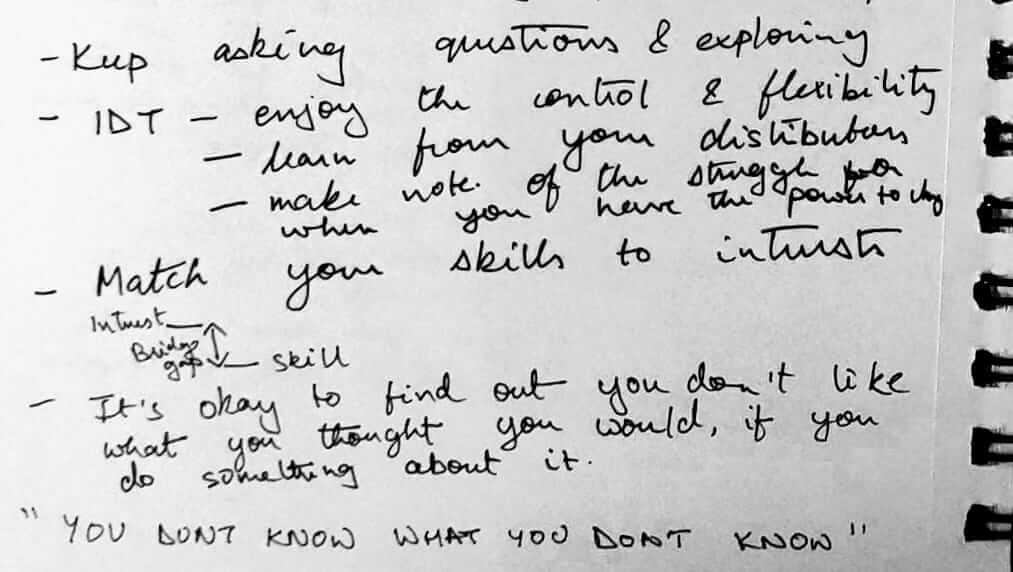 - Keep asking questions & exploring
- IDT - enjoy the control & flexibility
- learn from your distributors
- make note of the struggle for
when you have the power to
- Match your skills to interests
Interest
Bridge
gap skill
- It's okay to find out you don't like
what you thought you would, if you
do something about it.
"YOU DONT KNOW WHAT YOU DONT KNOW"